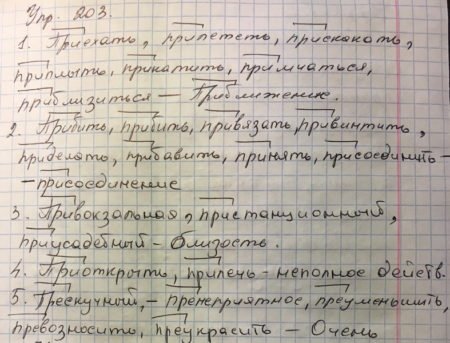 Упр. 203.
1. Приехать, прилететь, прискакать,
приплыть, прикатить, примчаться,
приблизиться – Приближение.
2. Прибить, пришить, привязать, привинтить,
приделать, прибавить, принять, присоединить –
– присоединение
3. Привокзальная, пристанционный,
приусадебный – близость.
4. Приоткрыть, прилечь – неполное действ.
5. Прескучный, – пренеприятное, преуменьшить,
превозносить, преукрасить – Очень